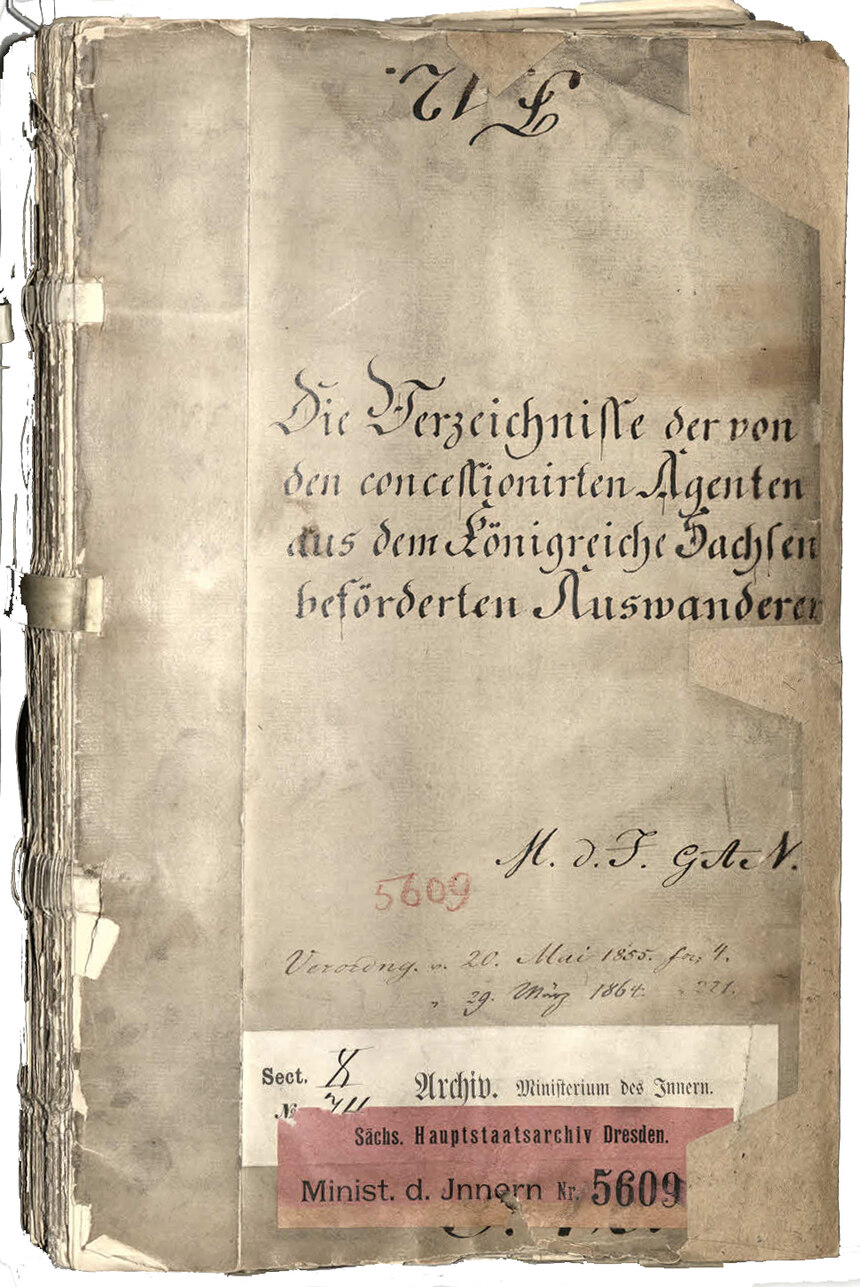 12
Die Verzeichnisse der von
den concessionirten Agenten
aus dem Königreiche Sachsen
beförderten Auswanderer
M. d. J.
5609
Verordng. v. 20. Mai 1855. fol. 4.
" 29. März 1864. " 221.
Sect. X
Archiv. Ministerium des Innern.
№
Sächs. Hauptstaatsarchiv Dresden.
Minist. d. Jnnern Nr. 5609